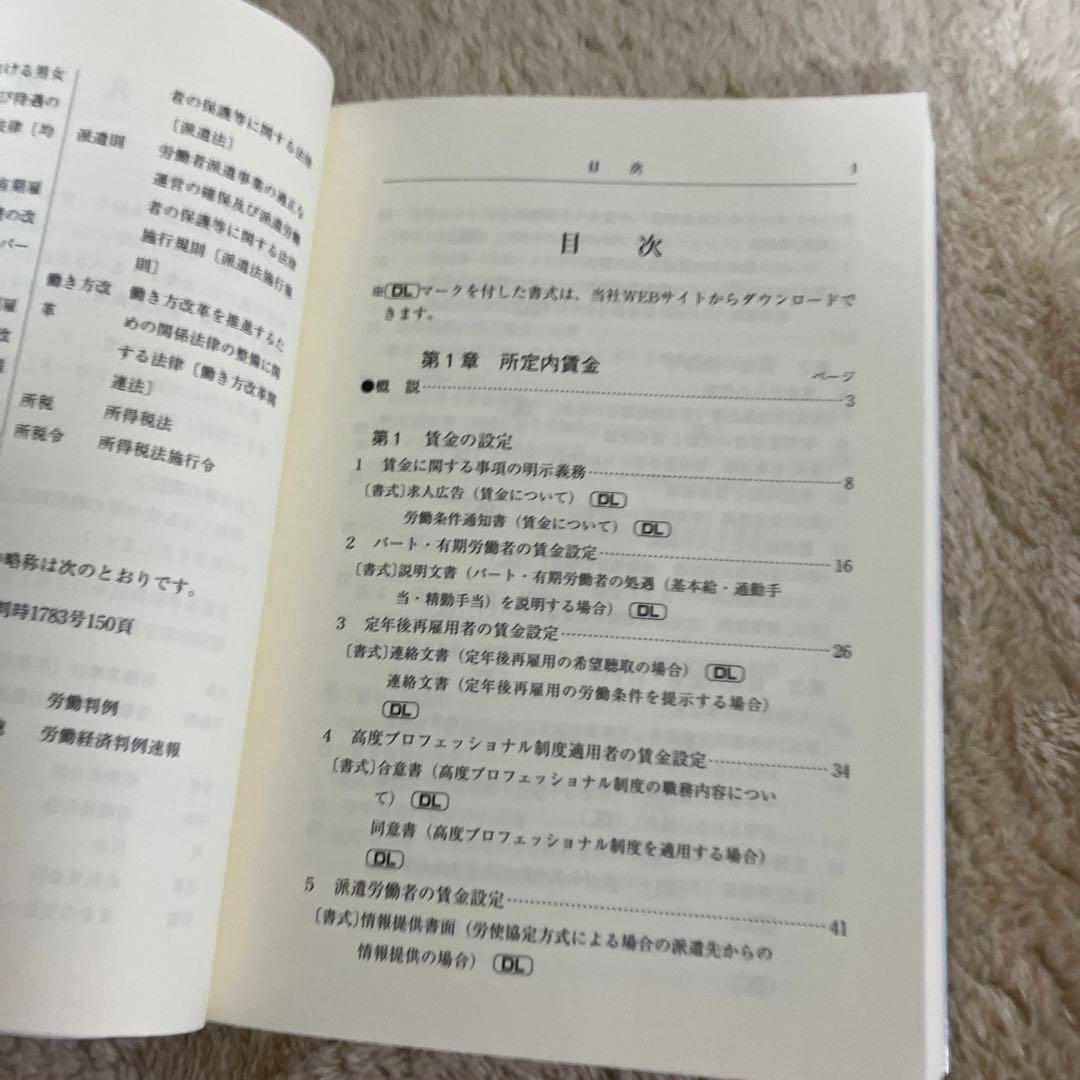 ける男女
び待遇の
法律〔均
有期雇
の改
パー
雇
改
派遣則
者の保護等に関する法律
〔派遣法〕
労働者派遣事業の適正な
運営の確保及び派遣労働
者の保護等に関する法律
施行規則〔派遣法施行規
則〕
働き方改
革
働き方改革を推進するた
めの関係法律の整備に関
する法律〔働き方改革関
連法〕
所税 所得税法
所税令 所得税法施行令
略称は次のとおりです。
判時1783号150頁
労働判例
労働経済判例速報
目 次 1
目 次
※(DL)マークを付した書式は、当社WEBサイトからダウンロードで
きます。
第1章 所定内賃金
ページ
●概 説……3
第1 賃金の設定
1 賃金に関する事項の明示義務……8
〔書式〕求人広告(賃金について)(DL)
労働条件通知書(賃金について)(DL)
2 パート・有期労働者の賃金設定……16
〔書式〕説明文書(パート・有期労働者の処遇(基本給・通勤手
当・精勤手当)を説明する場合)(DL)
3 定年後再雇用者の賃金設定……26
〔書式〕連絡文書(定年後再雇用の希望聴取の場合)(DL)
連絡文書(定年後再雇用の労働条件を提示する場合)
(DL)
4 高度プロフェッショナル制度適用者の賃金設定……34
〔書式〕合意書(高度プロフェッショナル制度の職務内容につい
て)(DL)
同意書(高度プロフェッショナル制度を適用する場合)
(DL)
5 派遣労働者の賃金設定……41
〔書式〕情報提供書面(労使協定方式による場合の派遣先からの
情報提供の場合)(DL)